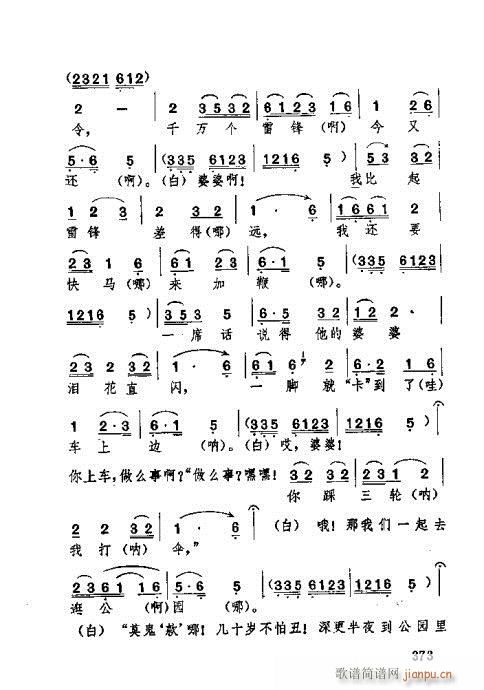 (2321 612)
2 — 2 3532 61231 16 1 26
令, 千万个雷锋(啊)今又
5·6 5 (335 6123 1216 5) 53 32
还(啊)。(白)婆婆啊! 我比起
1 2 3 232 1· 6 1661 2
雷锋差得(哪)远, 我还要
23 1 6 2312 6·1 5 (335 6123
快马(哪)来加鞭(哪)。
1216 5) 353 5 6·5 32 12 2·
一席话说得他的婆婆
23 2 3 1· 6 6 6 6·2 16
泪花直闪, 一脚就“卡”到了(哇)
1 2·3 6·1 5 (335 6123 1216 5)
车上边(呐)。(白)哎,婆婆!
你上车,做么事啊?“做么事?嘿嘿! 32 32 231 2
你踩三轮(呐)
2 2 32 1· 6 (白)哦!那我们一起去
我打(呐)伞,”
2361 2 5·6 5 (335 6123 1216 5)
逛公(啊)园(哪)。
(白)“莫鬼‘款’哪!几十岁不怕丑!深更半夜到公园里
373
歌谱简谱网
jianpu.cn